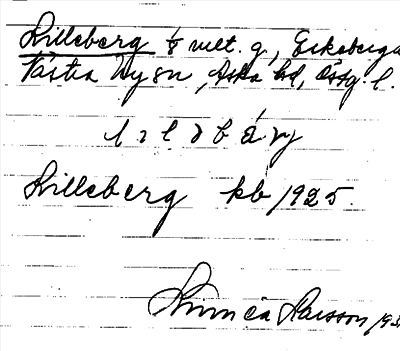 Lilleberg 1/8 mtl. g, Eskeberga
Västra Ny sn, Aska hd, Östg. l.
Lilleberg kb 1925.
Linnéa Larsson 193